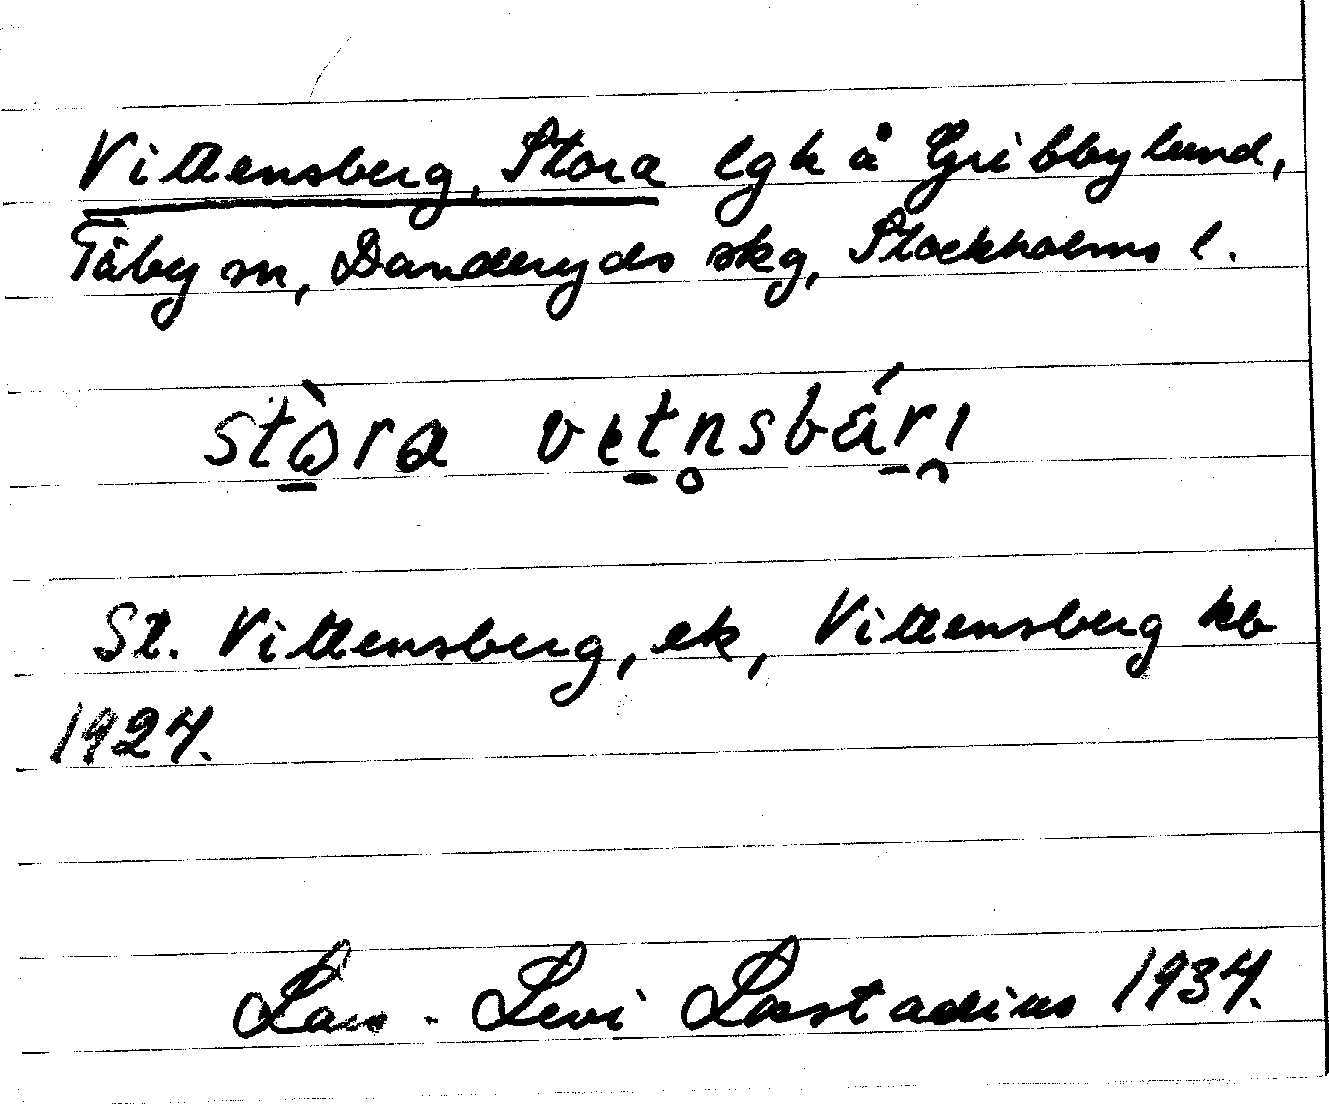 Vittensberg, Stora lgh å Gribbylund,
Täby sn, Danderyds skg, Stockholms l.
stòra vetn̥sbárı
St. Vittensberg, ek, Vittensberg kb
1924.
Lars-Levi Læstadius 1934.